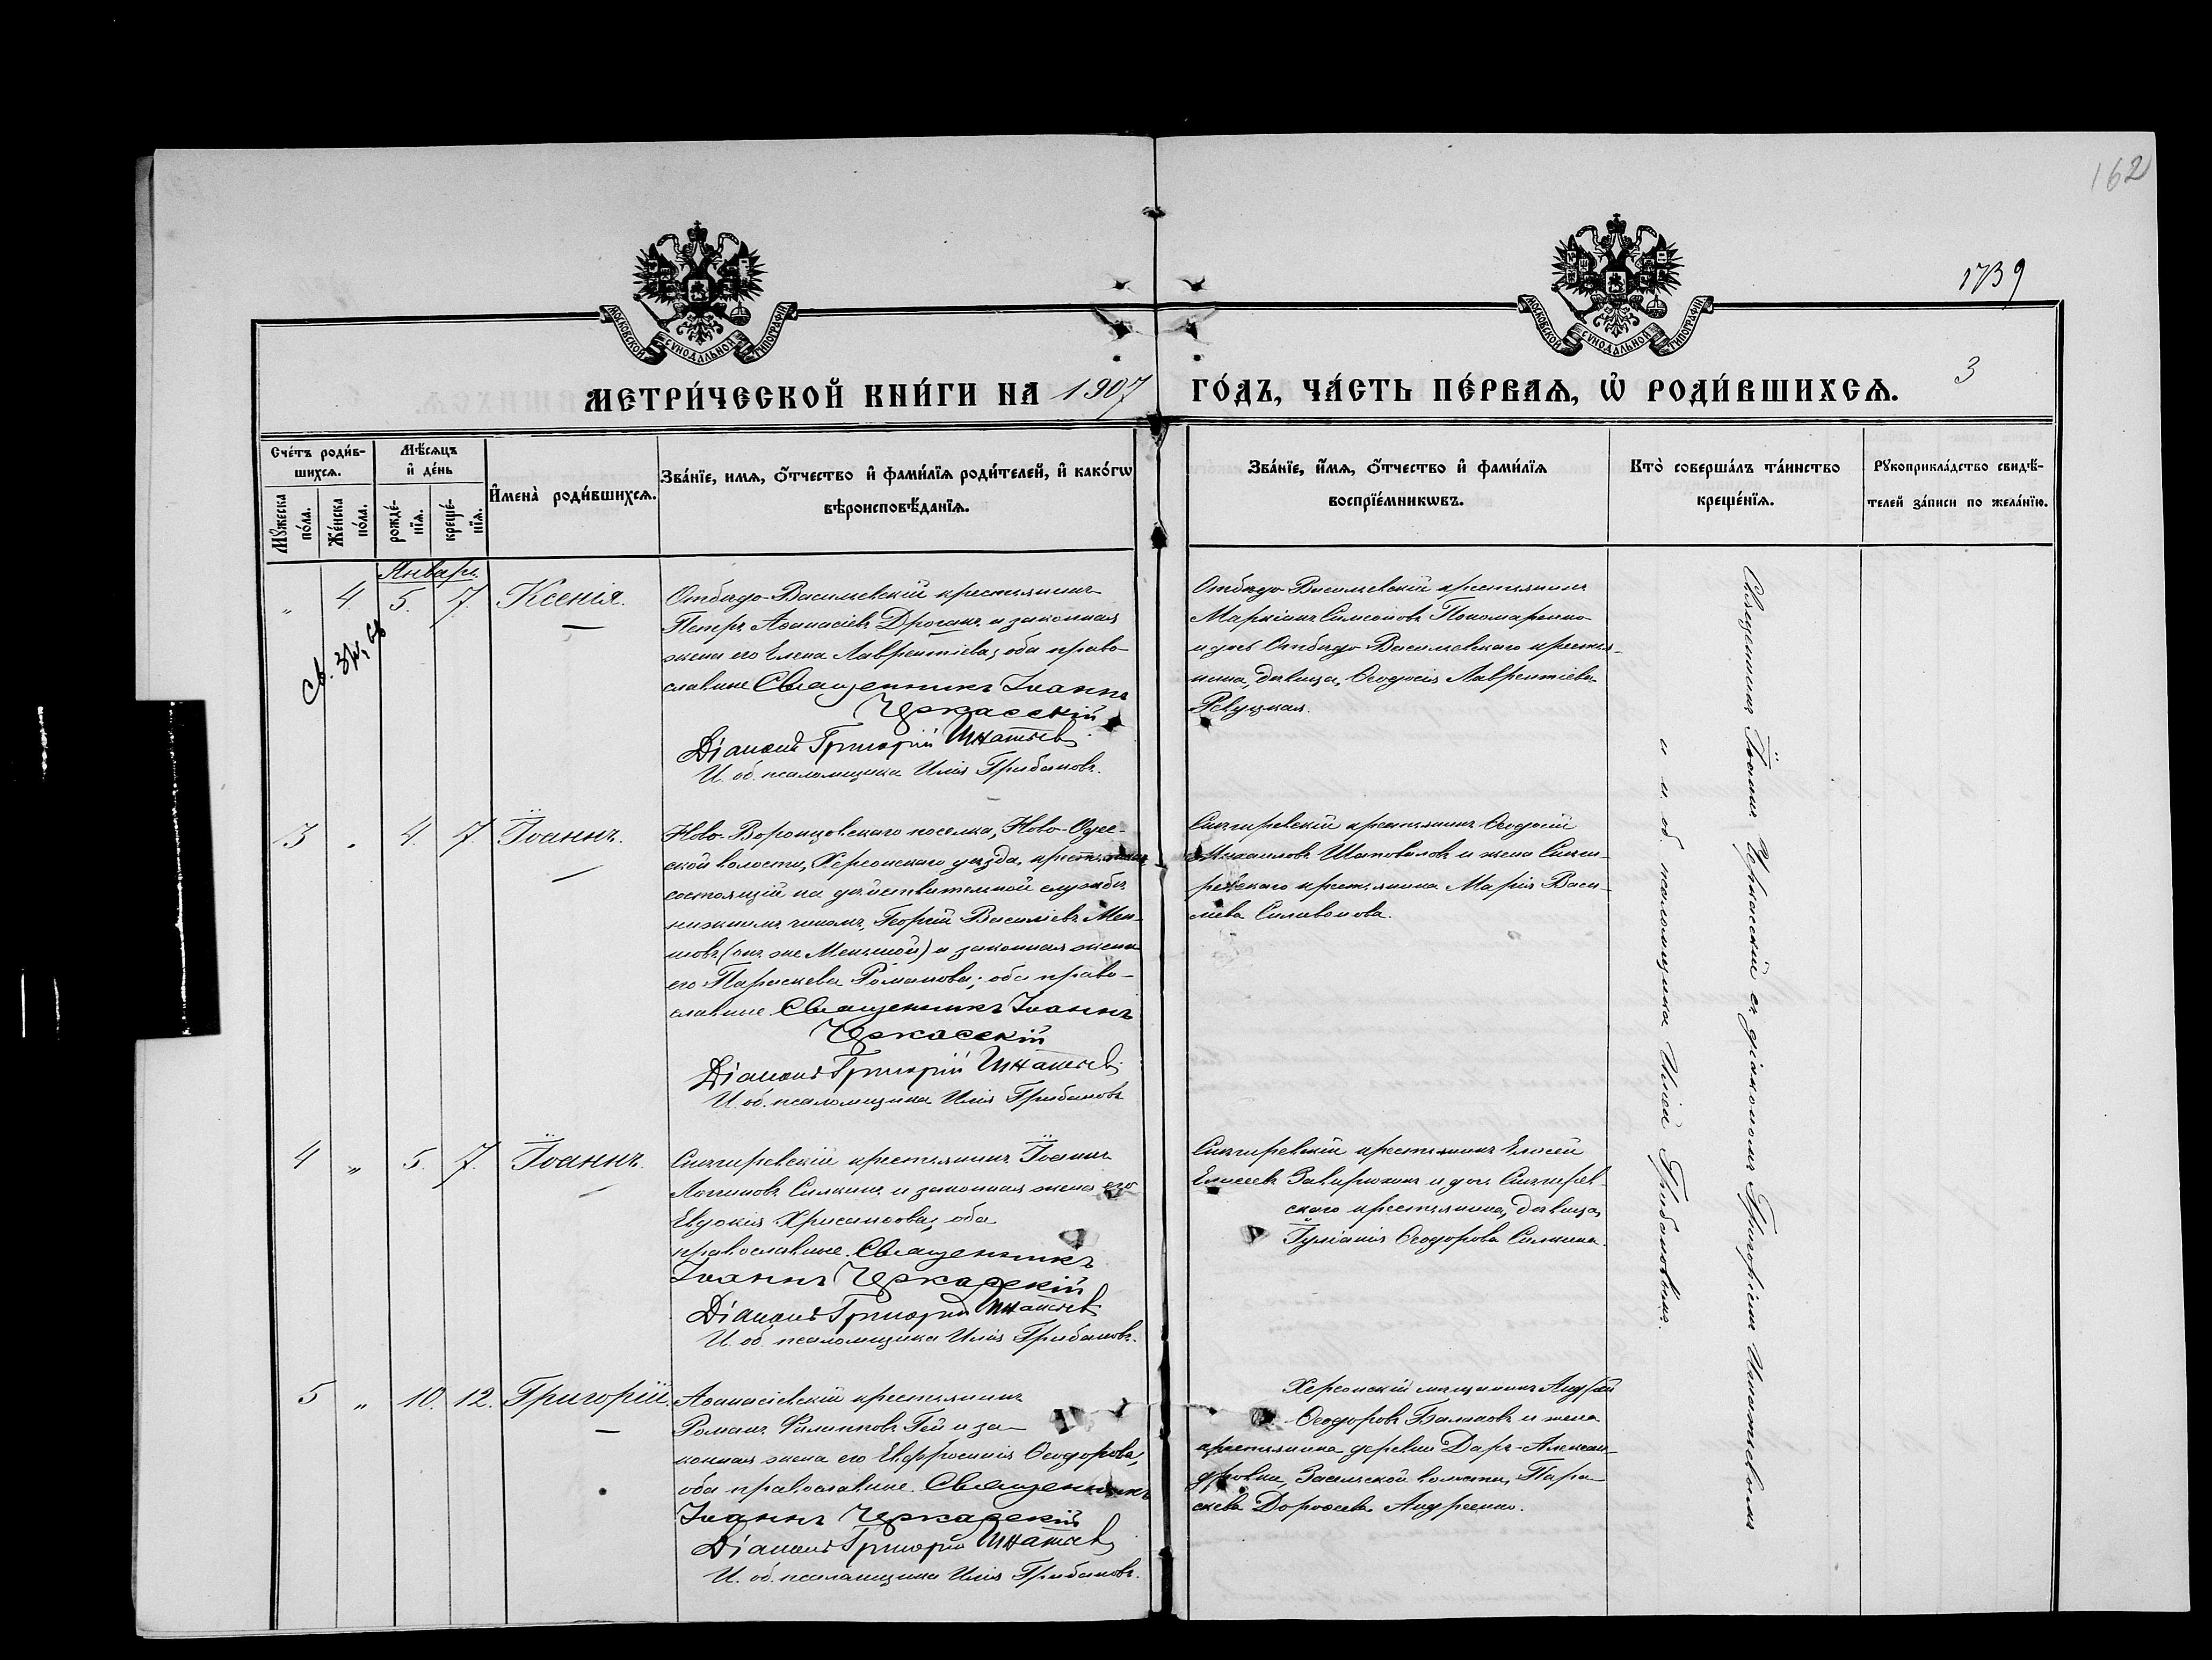 162
1739
МОСКОВСКОЙ СѴНОДАЛЬНОЙ ТИПОГРАФІИ
МОСКОВСКОЙ СѴНОДАЛЬНОЙ ТИПОГРАФІИ
МЕТРИ́ЧЕСКОЙ КНИ́ГИ НА 1907 ГО́ДЪ, ЧА́СТЬ ПЕ́РВАѦ, Ѡ҆ РОДИ́ВШИХСѦ. 3
Сче́тъ роди́в-
шихсѧ.
Мꙋ́жеска по́ла.
Же́нска по́ла.
Мѣ́сѧцъ
и҆ де́нь
рожде́-
нїѧ.
креще́-
нїѧ.
И҆мена̀ роди́вшихсѧ.
Зва́нїе, имѧ, ѻ҆́тчество и҆ фами́лїѧ роди́телей, и҆ како́гѡ
вѣроисповѣ́данїѧ.
Зва́нїе, и҆́мѧ, ѻ҆́тчество и҆ фами́лїѧ
воспрїе́мникѡвъ.
Кто̀ соверша́лъ та́инство
креще́нїѧ.
Рꙋкоприкла́дство свидѣ́-
телей за́писи по жела́нїю.
Январь.
" 4. 5. 7. Ксенія.
Отбѣдо-Васильевскій крестьянинъ
Петръ Аѳанасіевъ Дроганъ и законная
жена его Елена Лаврентіева; оба право-
славные Священникъ Іоаннъ
Черкасскій
Діаконъ Григорій Игнатьевъ
И. об. псаломщика Илія Грибановъ.
Отбѣдо-Васильевскій крестьянинъ
Маркіанъ Симеоновъ Пономаренко
и дочь Отбѣдо-Васильевскаго крестья-
нина, дѣвица, Ѳеодосія Лаврентіева
Ревуцкая.
3 " 4. 7. Іоаннъ.
Ново-Воронцовскаго поселка, Ново-Одес-
ской волости, Херсонскаго уѣзда, крестьянинъ
состоящій на дѣйствительной службѣ
нижнимъ чиномъ, Георгій Василіевъ Мен-
шовъ (онъ же Меньшой) и законная жена
его Параскева Романова; оба право-
славные. Священникъ Іоаннъ
Черкасскій
Діаконъ Григорій Игнатьевъ
И. об. псаломщика Илія Грибановъ
Снигиревскій крестьянинъ Ѳеодосій
Михаиловъ Шаповаловъ и жена Сниги-
ревскаго крестьянина Марія Васи-
лиева Силивонова.
4 " 5. 7. Іоаннъ.
Снигиревскій крестьянинъ Іоаннъ
Логиновъ Силкинъ и законная жена его
Евдокія Хрисанѳова; оба
православные. Священникъ
Іоаннъ Черкасскій
Діаконъ Григорій Игнатьевъ
И. об. псаломщика Илія Грибановъ.
Снигиревскій крестьянинъ Елисей
Елисеевъ Завирюхинъ и дочь Снигирев-
скаго крестьянина, дѣвица,
Іуліанія Ѳеодорова Силкина.
5 " 10. 12. Григорій.
Аѳанасіевскій крестьянинъ
Романъ Филипповъ Гей и за-
конная жена его Евфросинія Ѳеодорова,
оба православные. Священникъ
Іоаннъ Черкасскій
Діаконъ Григорій Игнатьевъ
И. об. псаломщика Илія Грибановъ.
Херсонскій мѣщанинъ Андрей
Ѳеодоровъ Балановъ и жена
крестьянина деревни Даръ-Алексан-
дровки, Засельской волости, Пара-
скева Дороѳеева Андреенко.
Священникъ Іоаннъ Черкасскій съ діакономъ Григоріемъ Игнатьевымъ
и и. об. псаломщика Иліей Грибановымъ.